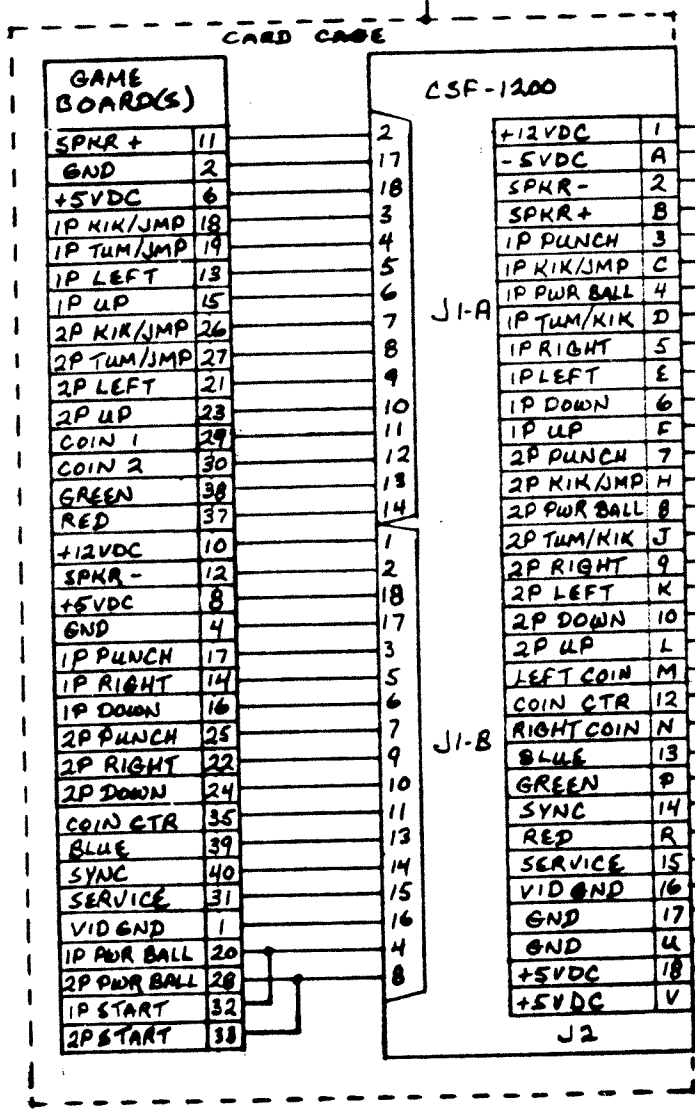 CARD CAGE
GAME
BOARD(S)
SPKR + 11
GND 2
+5VDC 6
1P KIK/JMP 18
1P TUM/JMP 19
1P LEFT 13
1P UP 15
2P KIK/JMP 26
2P TUM/JMP 27
2P LEFT 21
2P UP 23
COIN 1 29
COIN 2 30
GREEN 38
RED 37
+12VDC 10
SPKR - 12
+5VDC 8
GND 4
1P PUNCH 17
1P RIGHT 14
1P DOWN 16
2P PUNCH 25
2P RIGHT 22
2P DOWN 24
COIN CTR 35
BLUE 39
SYNC 40
SERVICE 31
VID GND 1
1P PWR BALL 20
2P PWR BALL 28
1P START 32
2P START 33
CSF-1200
2
17
18
3
4
5
6
7
8
9
10
11
12
13
14
J1-A
1
2
18
17
3
5
6
7
9
10
11
13
14
15
16
4
8
J1-B
+12VDC 1
-5VDC A
SPKR- 2
SPKR+ B
1P PUNCH 3
1P KIK/JMP C
1P PWR BALL 4
1P TUM/KIK D
1P RIGHT 5
1P LEFT E
1P DOWN 6
1P UP F
2P PUNCH 7
2P KIK/JMP H
2P PWR BALL 8
2P TUM/KIK J
2P RIGHT 9
2P LEFT K
2P DOWN 10
2P UP L
LEFT COIN M
COIN CTR 12
RIGHT COIN N
BLUE 13
GREEN P
SYNC 14
RED R
SERVICE 15
VID GND 16
GND 17
GND U
+5VDC 18
+5VDC V
J2